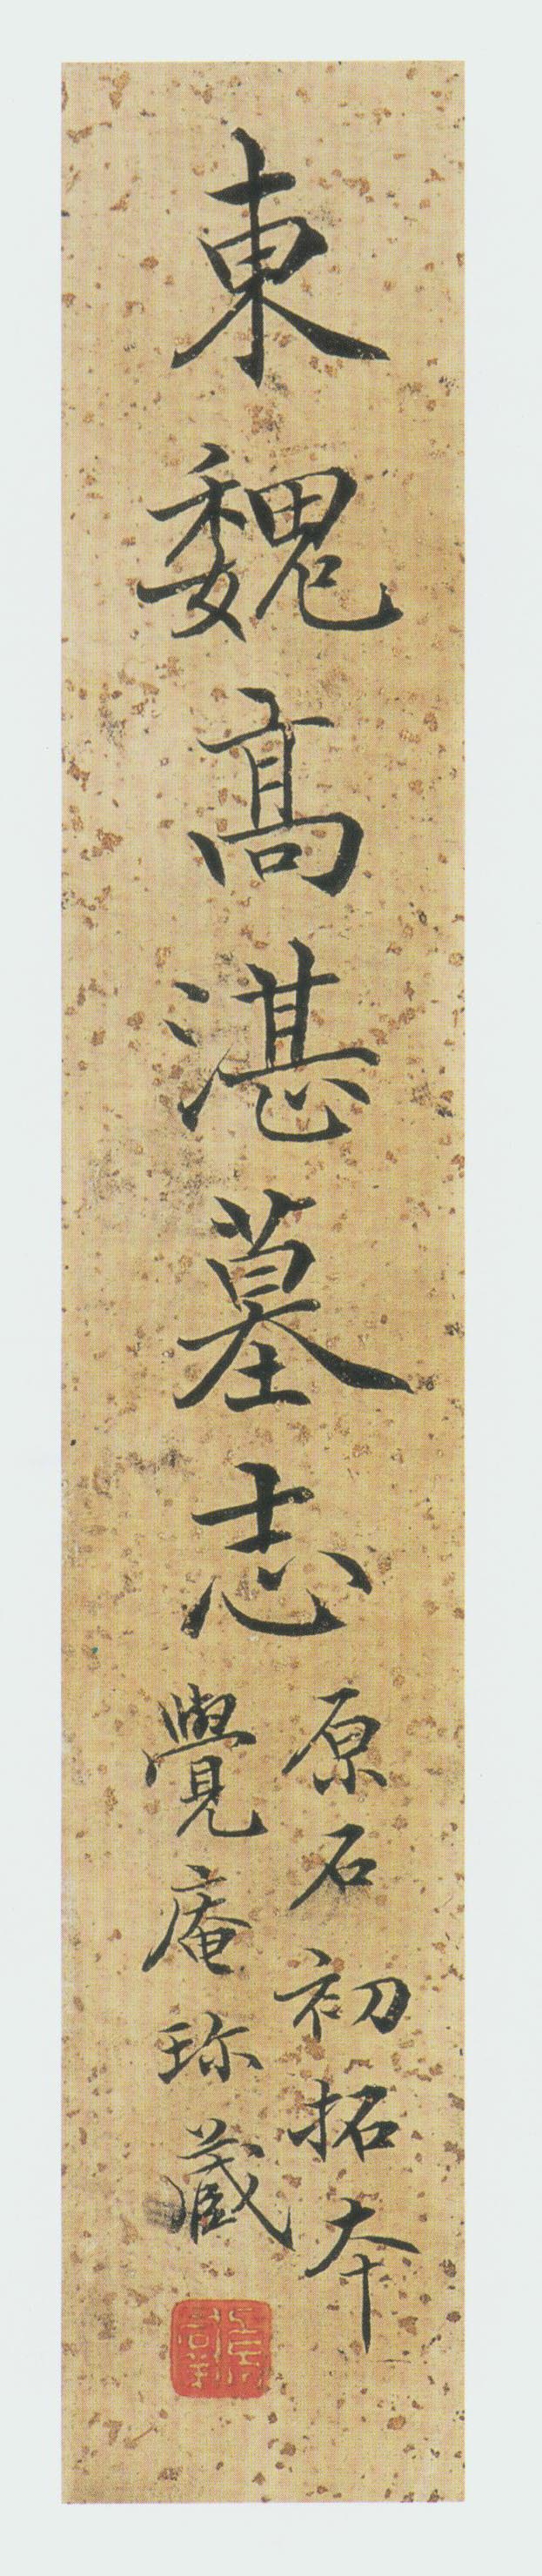 東魏髙湛墓志
原石初拓本
覺庵珎蔵